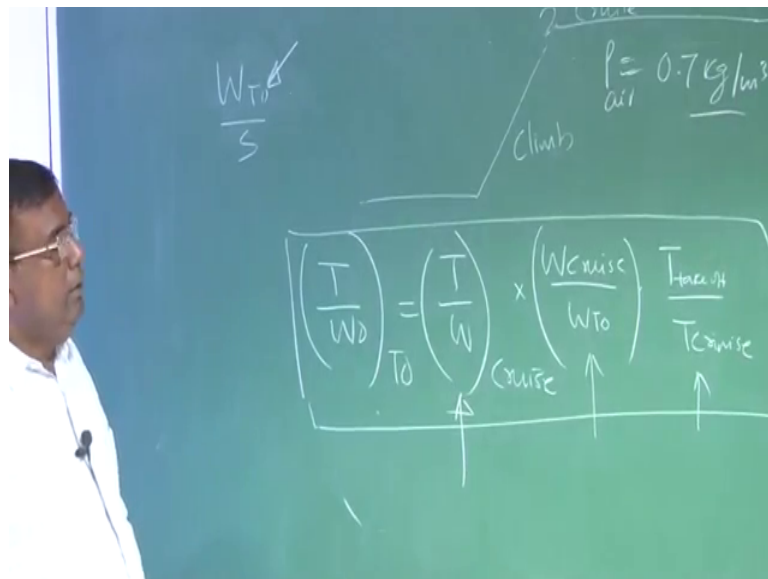 2 Cruise
W_TO
S
ρ_air = 0.7 kg/m³
Climb
(T/W0)_TO = (T/W)_Cruise × (W_Cruise/W_TO) T_takeoff/T_Cruise